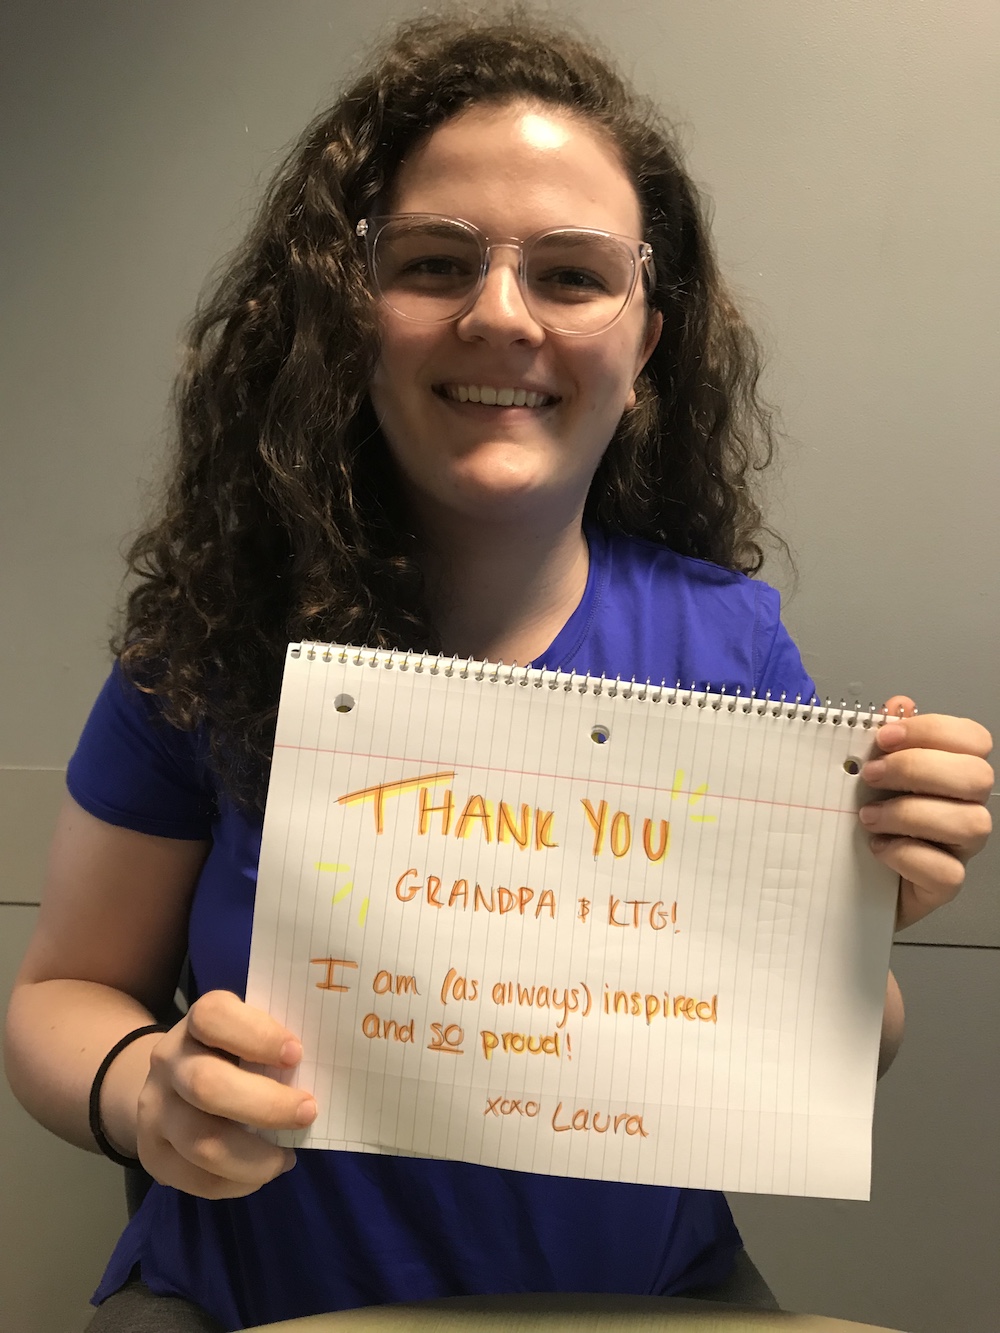 THANK YOU
GRANDPA & KTG!
I am (as always) inspired
and so proud!
xoxo Laura